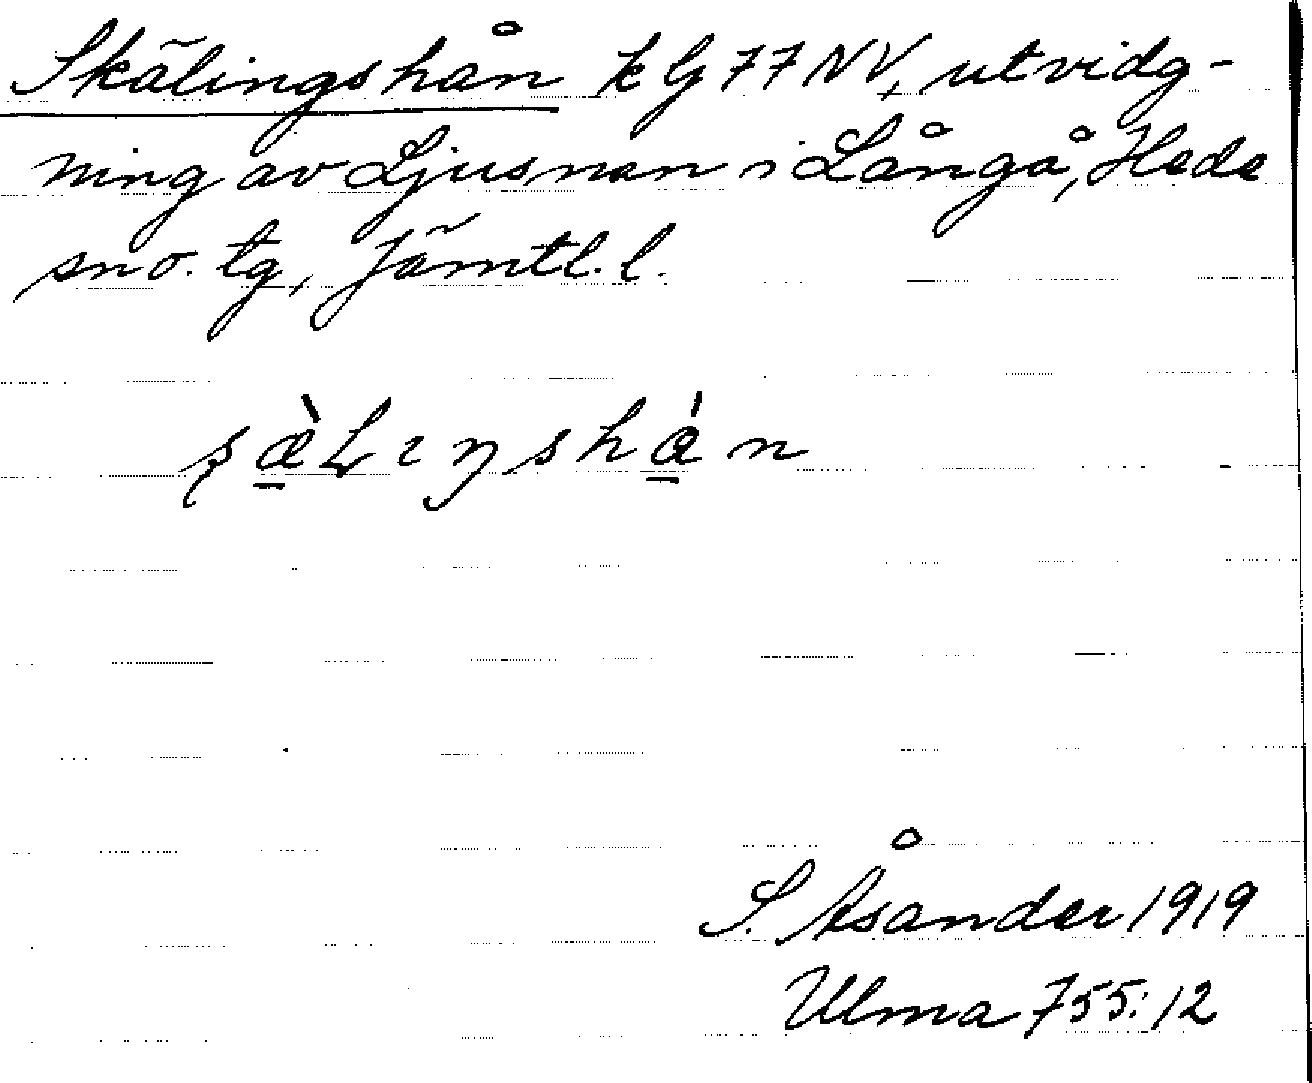 Skälingshån k G 77 NV, utvidg-
ning av Ljusnan i Långå, Hede
sn o. tg, Jämtl. l.
ʂæ̀Lıŋshán
S. Åsander 1919
Ulma 755:12